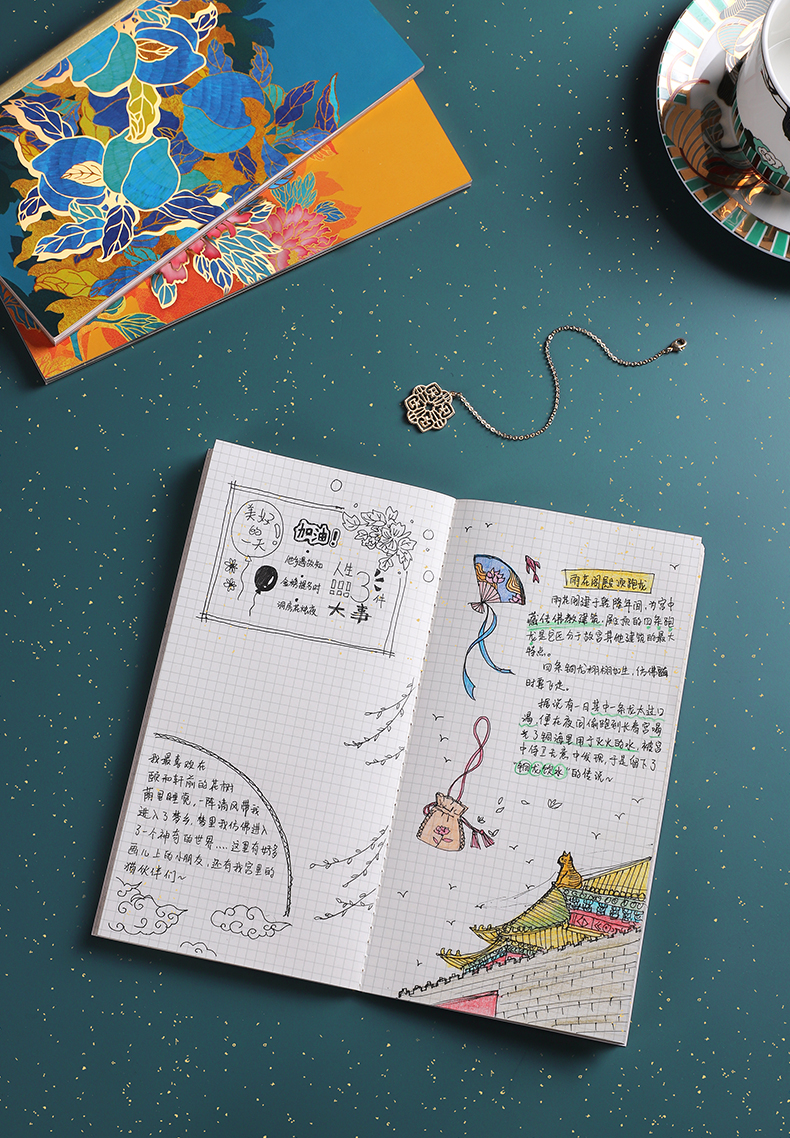 美好
的
一天
加油！
他乡遇故知
金榜题名时
洞房花烛夜
人生
3件
大事
我最喜欢在
颐和轩前的花树
荫里睡觉，一阵清风带我
进入了梦乡，梦里我仿佛进入
了一个神奇的世界....这里有好多
画儿上的小朋友，还有我宫里的
猫伙伴们~
雨花阁殿顶跑龙
雨花阁建于乾隆年间，为宫中
藏传佛教建筑，殿顶的四条跑
龙是它区分于故宫其他建筑的最大
特点。
四条铜龙栩栩如生，仿佛随
时要飞走。
据说有一日其中一条龙太过口
渴，便在夜间偷跑到长春宫喝
光了铜海里用于灭火的水，被宫
中侍卫无意中发现，于是留下了
"铜龙饮水"的传说~